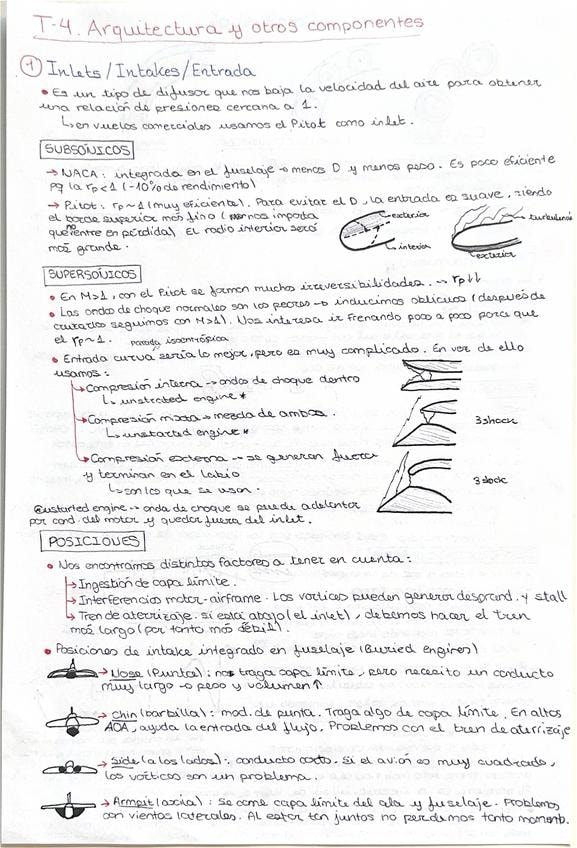 T-4. Arquitectura y otros componentes
1 Inlets/Intakes/Entrada
• Es un tipo de difusor que nos baja la velocidad del aire para obtener
una relación de presiones cercana a 1.
↳ en vuelos comerciales usamos el Pitot como inlet.
SUBSÓNICOS
→ NACA: integrada en el fuselaje → menos D y menos peso. Es poco eficiente
pq la rp<1 (-10% de rendimiento)
→ Pitot: rp~1 (muy eficiente). Para evitar el D, la entrada es suave, siendo
el borde superior más fino ( nos importa
que no entre en pérdida). El radio interior será
más grande.
exterior
interior
turbulencia
exterior
SUPERSÓNICOS
• En M>1, con el Pitot se forman mucha irreversibilidades. → rp↓↓
• Las ondas de choque normales son las peores → inducimos oblicuas (después de
cruzarlas seguimos con M>1). Nos interesa ir frenando poco a poco para que
el rp~1.
isentrópica
• Entrada curva sería lo mejor, pero es muy complicado. En vez de ello
usamos:
→ Compresión interna → ondas de choque dentro
↳ unstarted engine *
→ Compresión mixta → mezcla de ambas.
↳ unstarted engine *
3 shock
→ Compresión externa → se generan fuera
y terminan en el labio
↳ son las que se usan.
3 shock
unstarted engine → onda de choque se puede adelantar
por cond. del motor y quedar fuera del inlet.
POSICIONES
• Nos encontramos distintos factores a tener en cuenta:
→ Ingestión de capa límite.
→ Interferencias motor-airframe. Los vórtices pueden generar desprend. y stall
→ Tren de aterrizaje. si está abajo (el inlet), debemos hacer el tren
más largo (por tanto más débil).
• Posiciones de intake integrado en fuselaje (Buried engines)
→ Nose (Punta): no traga capa límite, pero necesito un conducto
muy largo → peso y volumen↑
→ Chin (barbilla): mod. de punta. Traga algo de capa límite. En altos
AOA, ayuda la entrada del flujo. Problemas con el tren de aterrizaje
→ Side (a los lados): conducto corto. Si el avión es muy cuadrado,
los vórtices son un problema.
→ Armpit (axila): Se come capa límite del ala y fuselaje. Problemas
con vientos laterales. Al estar tan juntos no perdemos tanto moment.